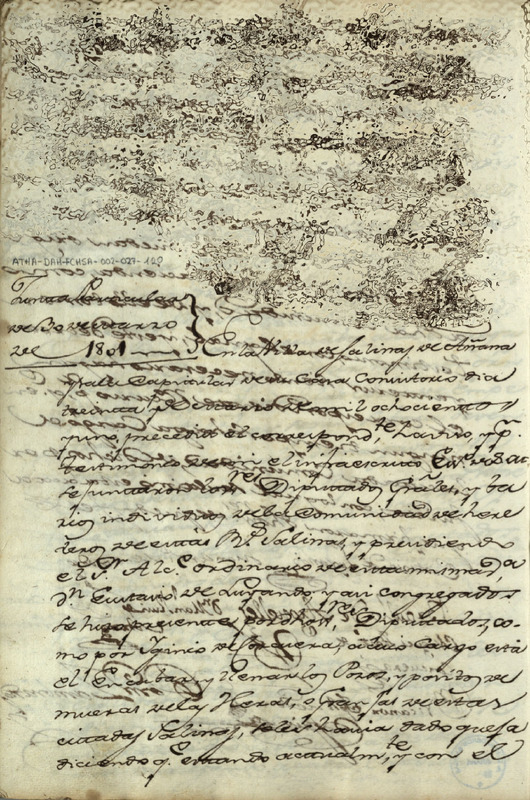 ATHA-DAH-FCHSA-002-027-122
Junta Particular
de 30 de Marzo
de 1801
En la Villa de Salinas de Añana
y sala Capitular de su Casa Consistorio dia
treinta de Marzo de mil ochocientos
y uno, precedido el correspond.te aviso, y p.r
testimonio de mi el infraescrito Es.no
se juntaron los S.res Diputados Grâles, y va
rios individuos de la Comunidad de here
deros de estas R.s Salinas, y presidiendo
el S.r Alc.e ordinario de esta misma V.a
D.n Eustasio de y asi congregados
se hizo presente por dhos S.res Diputados, co-
mo por Iginio de a cuio Cargo está
el Encubar, y llenar los Pozos, y pozitos de
mueras de las Heras, o Granjas de estas
citadas Salinas, se les havia dado quexa
diciendo q.e estando actualm.te, y con el